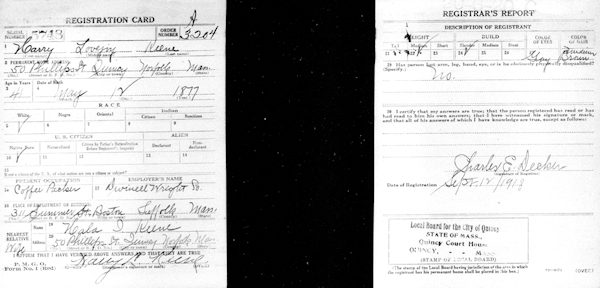 REGISTRATION CARD
A
SERIAL NUMBER
ORDER NUMBER 3204
Harry Lovejoy Keene
PERMANENT HOME ADDRESS
50 Phillips St. Quincy Norfolk Mass
Age in Years Date of Birth
41 May 12 1877
RACE
White Negro Oriental Indian
Citizen Noncitizen
U. S. CITIZEN ALIEN
Native Born Naturalized Citizen by Father's Naturalization Before Registrant's Majority Declarant Non-declarant
PRESENT OCCUPATION EMPLOYER'S NAME
Coffee Packer Dwinell Wright Co.
PLACE OF EMPLOYMENT OR BUSINESS
311 Summer St. Boston Suffolk Mass
Name
Keene
NEAREST RELATIVE
Address
50 Phillips St. Quincy Norfolk Mass
I AFFIRM THAT I HAVE VERIFIED ABOVE ANSWERS AND THAT THEY ARE TRUE
P. M. G. O.
Form No. 1 (Red)
Harry L. Keene
REGISTRAR'S REPORT
DESCRIPTION OF REGISTRANT
HEIGHT BUILD COLOR OF EYES COLOR OF HAIR
Tall Medium Short Slender Medium Stout
Gray Brown
29 Has person lost arm, leg, hand, eye, or is he obviously physically disqualified?
(Specify)
No.
30 I certify that my answers are true; that the person registered has read or has
had read to him his own answers; that I have witnessed his signature or mark,
and that all of his answers of which I have knowledge are true, except as follows:
Charles E. Decker
Date of Registration Sept. 12/1918
Local Board for the City of Quincy
STATE OF MASS.
Quincy Court House
QUINCY, MASS.
(STAMP OF LOCAL BOARD)
(The stamp of the Local Board having jurisdiction of the area in which
the registrant has his permanent home shall be placed in this box.)
(OVER)